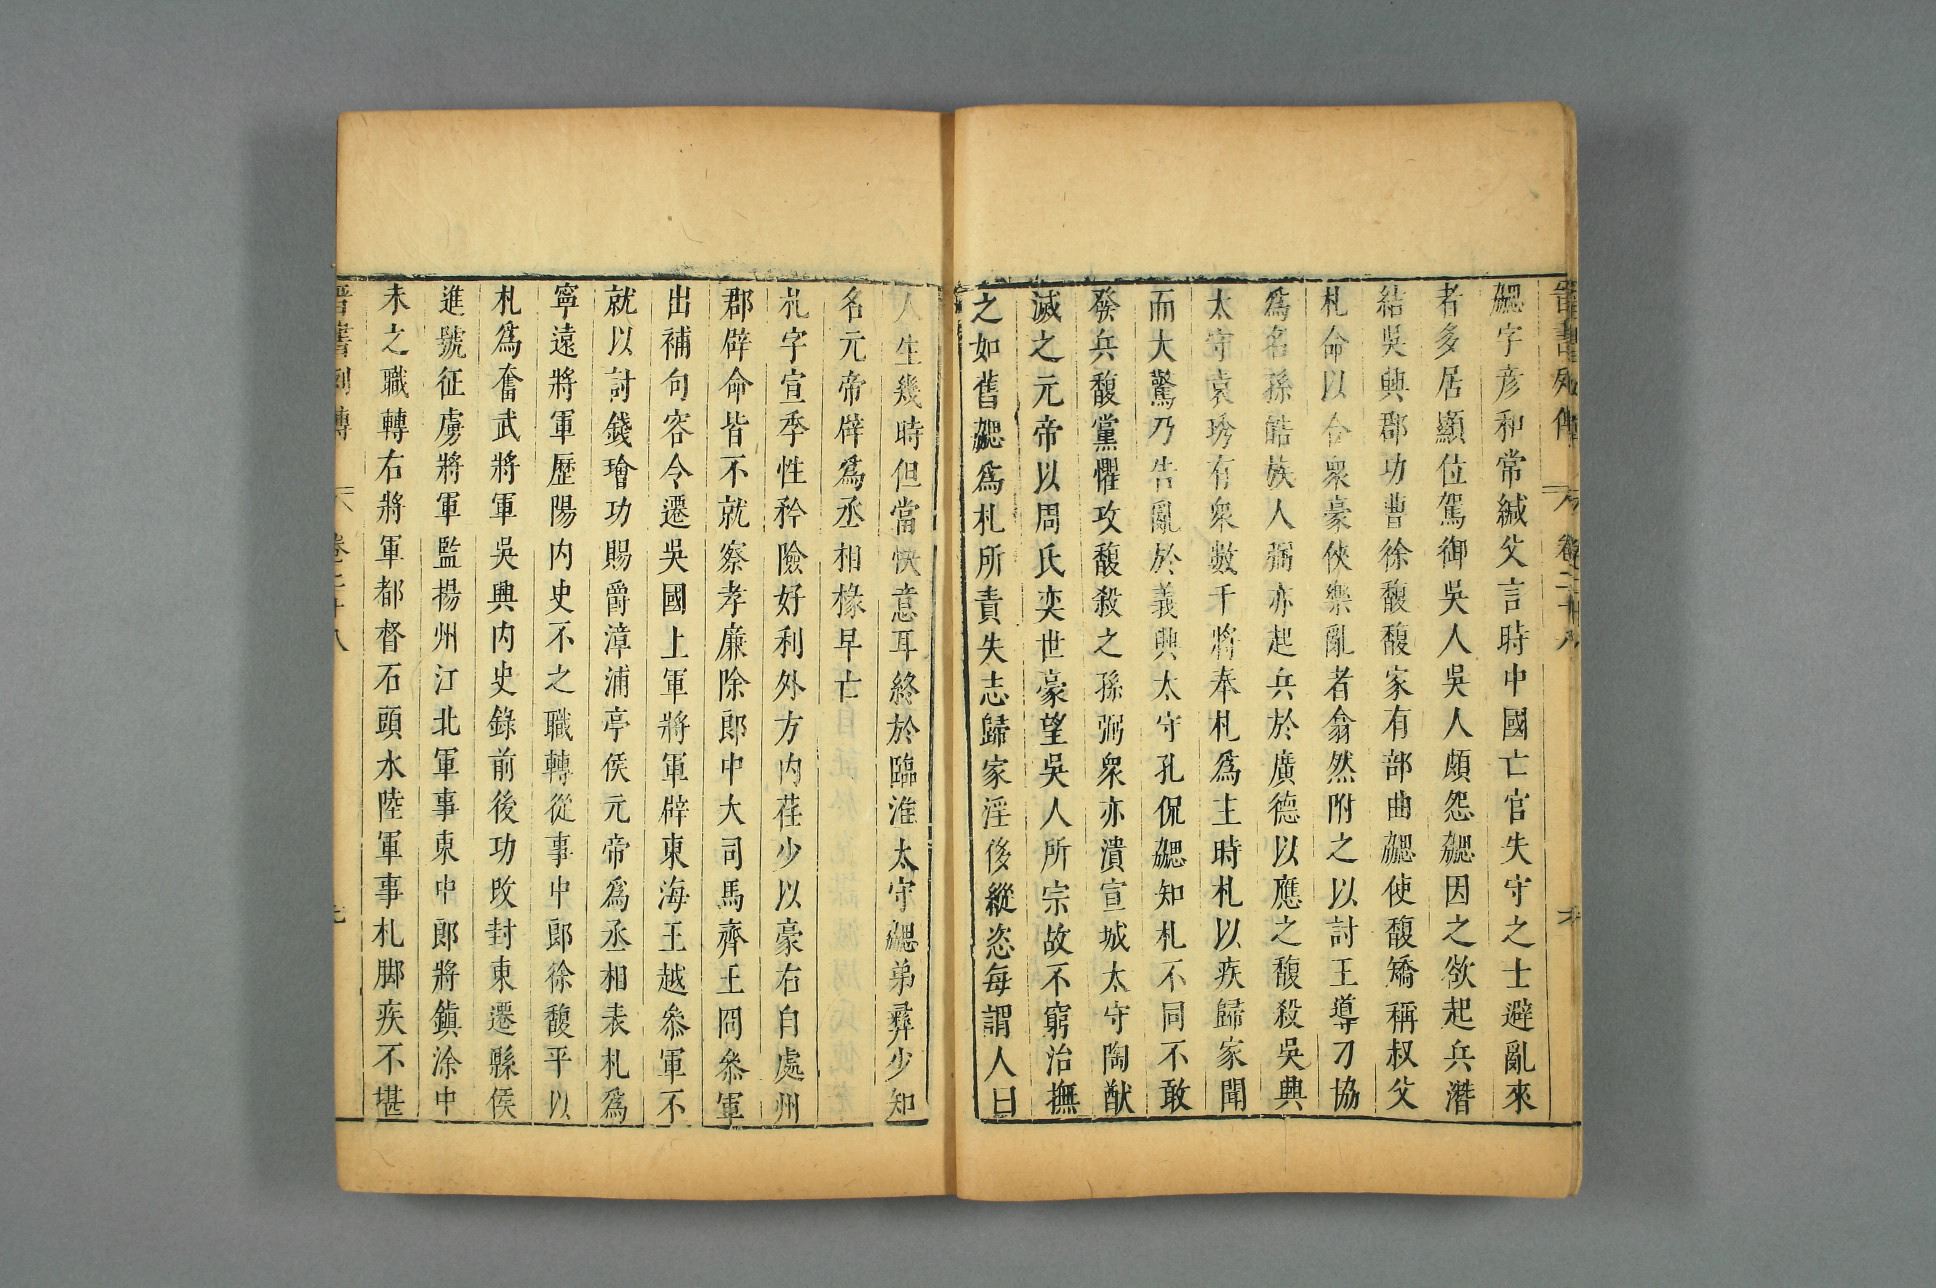 晉書列傳 卷二十八
勰字彦和常緘父言時中國亡官失守之士避亂來
者多居顯位駕御吳人吳人頗怨勰因之欲起兵潛
結吳興郡功曹徐馥馥家有部曲勰使馥矯稱叔父
札命以合衆豪俠樂亂者翕然附之以討王導刁協
爲名孫皓族人弼亦起兵於廣德以應之馥殺吳興
太守袁琇有衆數千將奉札爲主時札以疾歸家聞
而大驚乃告亂於義興太守孔侃勰知札不同不敢
發兵馥黨懼攻馥殺之孫弼衆亦潰宣城太守陶猷
滅之元帝以周氏奕世豪望吳人所宗故不窮治撫
之如舊勰爲札所責失志歸家淫侈縱恣每謂人曰
人生幾時但當快意耳終於臨淮太守勰弟彝少知
名元帝辟爲丞相椽早亡
札字宣季性矜險好利外方内荏少以豪右自處州
郡辟命皆不就察孝廉除郎中大司馬齊王冏叅軍
出補句容令遷吳國上軍將軍辟東海王越叅軍不
就以討錢璯功賜爵漳浦亭侯元帝爲丞相表札爲
寧遠將軍歷陽内史不之職轉從事中郎徐馥平以
札爲奮武將軍吳興内史錄前後功改封東遷縣侯
進號征虜將軍監揚州江北軍事東中郎將鎮涂中
未之職轉右將軍都督石頭水陸軍事札脚疾不堪
晉書列傳 卷二十八